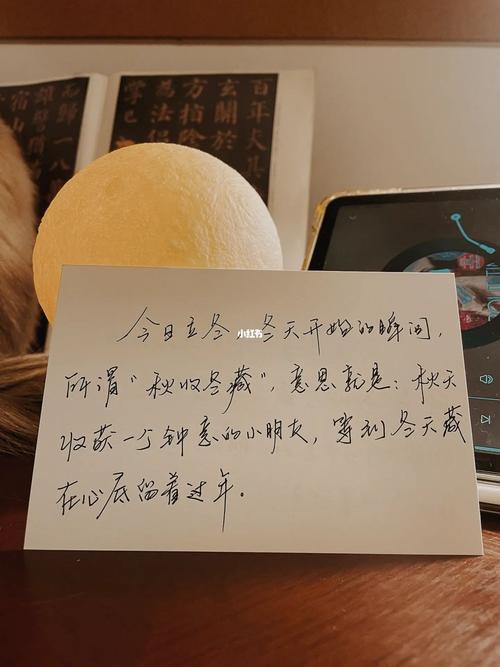 今日立冬 冬天开始的瞬间，
所谓“秋收冬藏”，意思就是：秋天
收获一个钟意的小朋友，等到冬天藏
在心底留着过年。
小红书
百年大其
玄關於
方拍陰
為法侶
掌已
无歸一八
雄警須
宿山